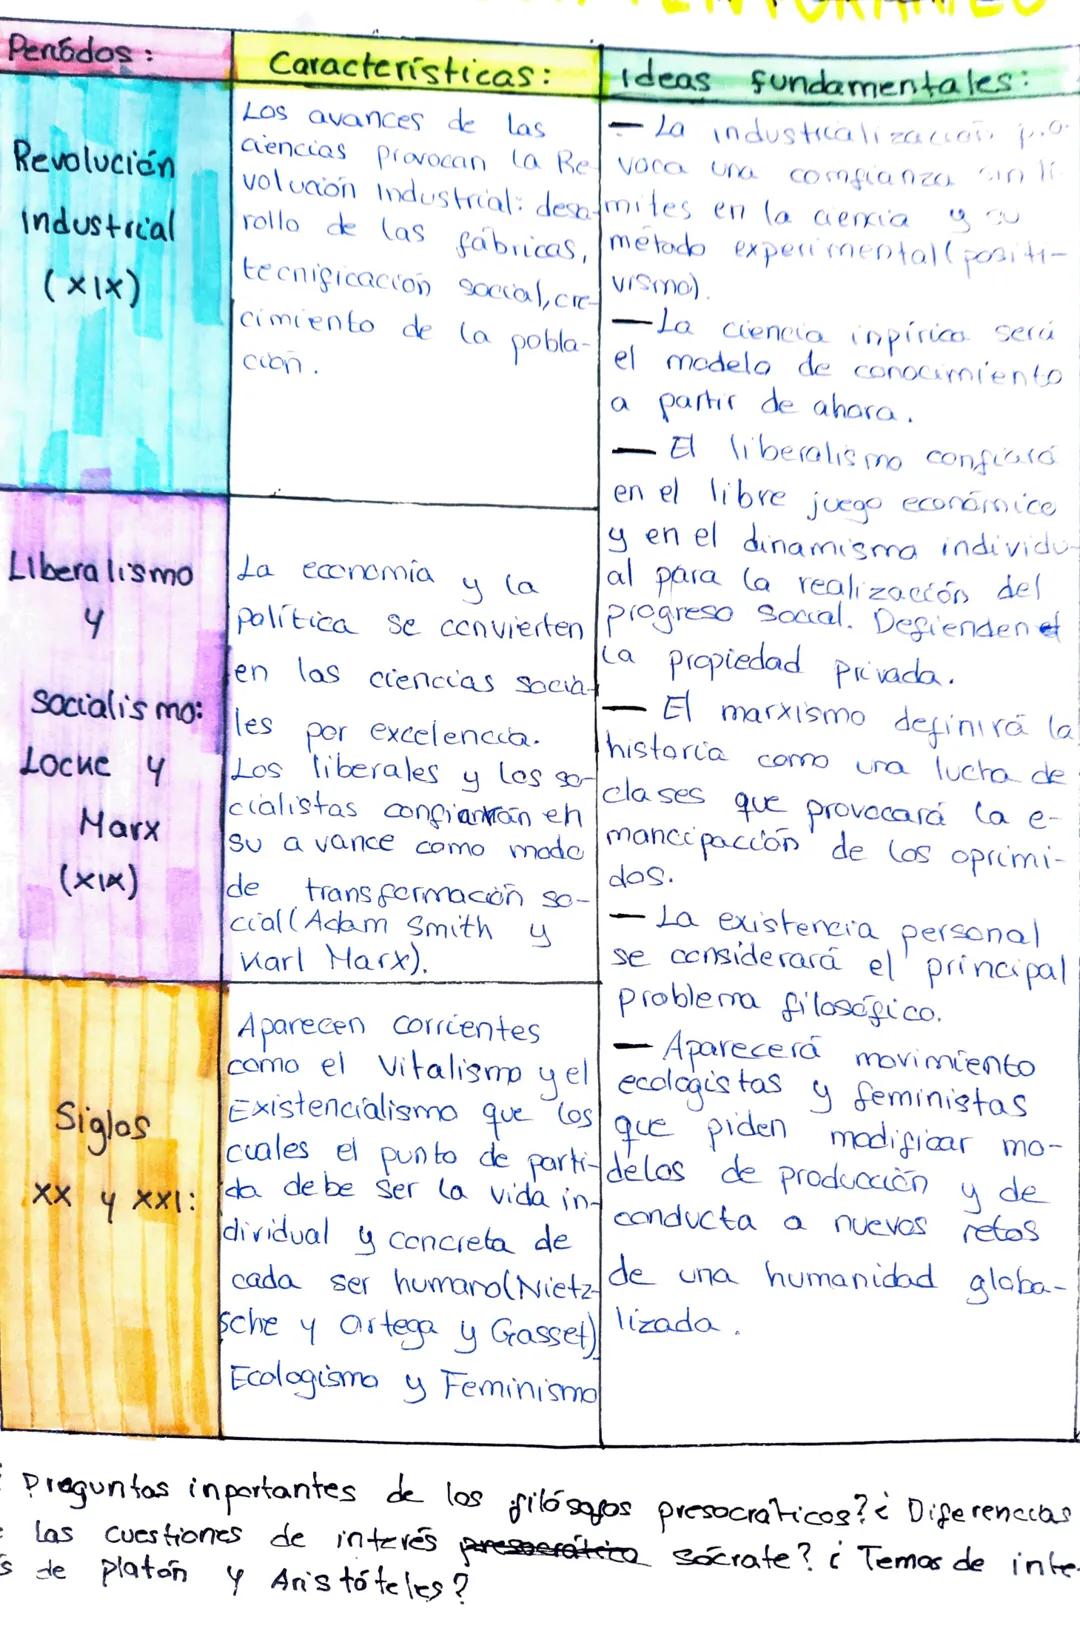 Períodos:
Características:
Ideas fundamentales:
Revolución
Industrial
(XIX)
Los avances de las
ciencias provocan la Re
volución Industrial: desa-
rrollo de las fábricas,
tecnificación social, cre-
cimiento de la pobla-
ción.
— La industrialización pro
voca una comfianza sin lí-
mites en la ciencia y su
método experimental (positi-
vismo).
— La ciencia inpírica será
el modelo de conocimiento
a partir de ahora.
— El liberalismo confiará
en el libre juego económico
y en el dinamismo individu-
al para la realización del
progreso social. Defienden
la propiedad privada.
— El marxismo definirá la
historia como una lucha de
clases que provocará la e-
mancipacción de los oprimi-
dos.
— La existencia personal
se considerará el principal
problema filosófico.
— Aparecerá movimiento
ecologistas y feministas
que piden modificar mo-
delos de producción y de
conducta a nuevos retos
de una humanidad globa-
lizada.
Liberalismo
y
Socialismo:
Locke y
Marx
(XIX)
La economía y la
política se convierten
en las ciencias socia-
les por excelencia.
Los liberales y los so-
cialistas confiarán en
su avance como modo
de transformación so-
cial (Adam Smith y
Karl Marx).
Siglos
XX y XXI:
Aparecen corrientes
como el Vitalismo y el
Existencialismo que los
cuales el punto de parti-
da debe ser la vida in-
dividual y concreta de
cada ser humano (Nietz-
sche y Ortega y Gasset)
Ecologismo y Feminismo
Preguntas inportantes de los filósofos presocraticos? ¿ Diferencias
las cuestiones de interés presocrático sócrate? ¿ Temas de inte-
s de platón y Aristóteles?